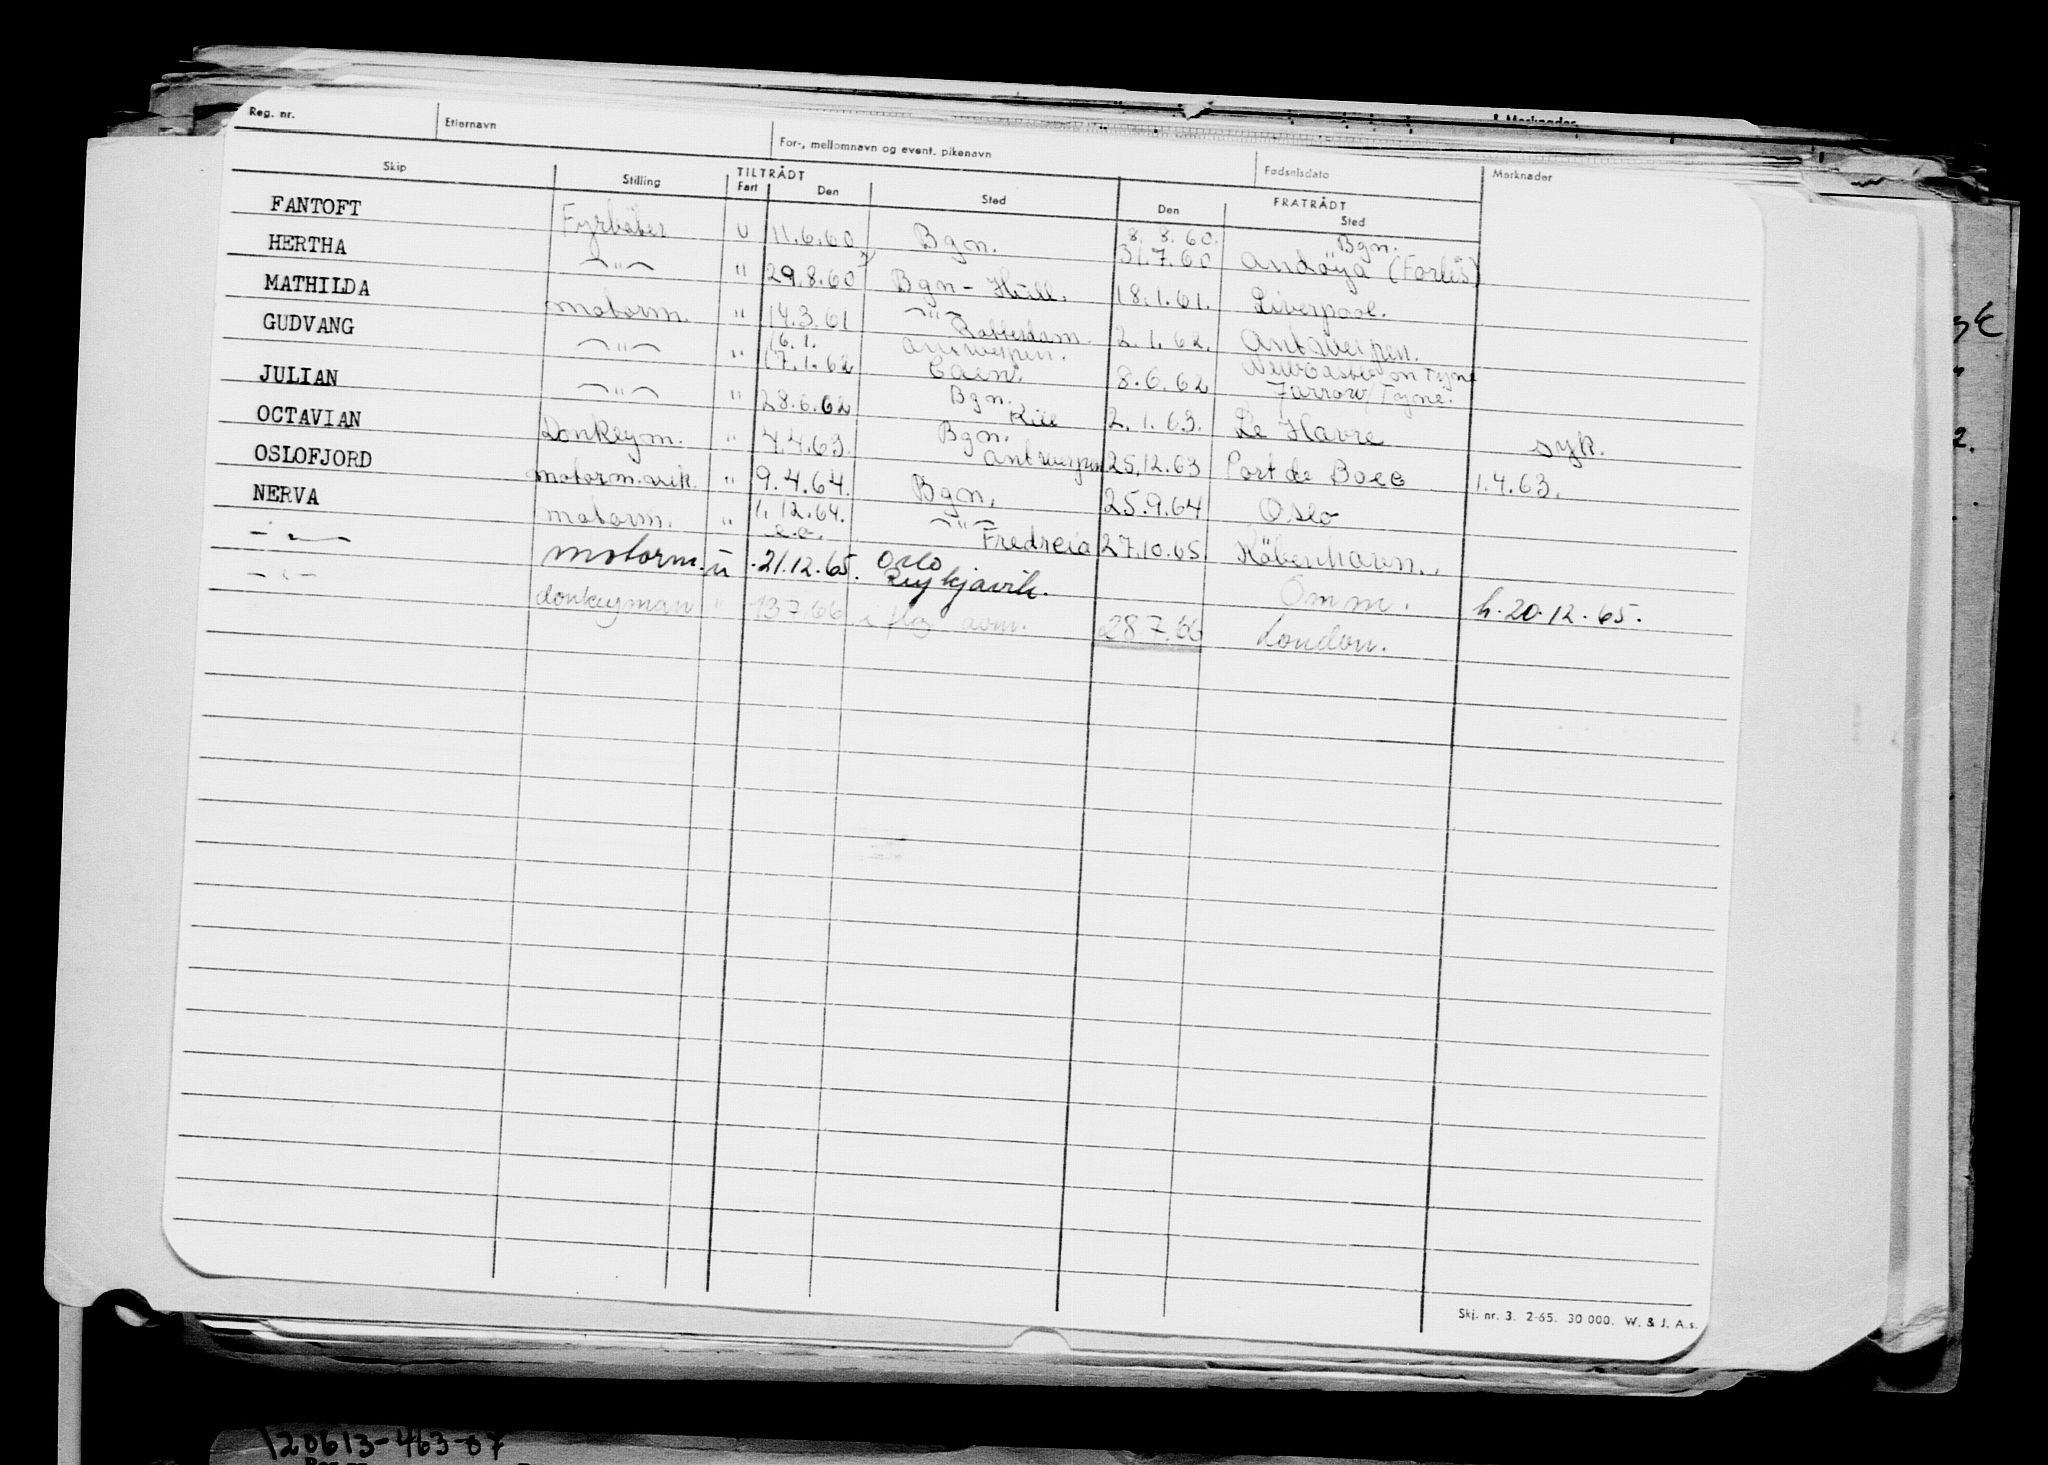 Reg. nr. Etternavn For-, mellomnavn og event. pikenavn Fødselsdato Merknader
Skip Stilling TILTRÅDT Fart Den Sted FRATRÅDT Den Sted
FANTOFT Fyrbøter U 11.6.60 Bgn. 8. 8. 60. Bgn.
31.7.60 Andöya (Forlis)
HERTHA -"- " 29.8.60 Bgn - Hull. 18.1.61. Liverpool.
MATHILDA motorm. " 14.3.61 -"- Rotterdam. 2.1.62. Antwerpen.
GUDVANG -"- " 16.1. Antwerpen. Newcastle on Tyne
17.1.62 Caen. 8.6.62 Jarrow/Tyne.
JULIAN -"- " 28.6.62 Bgn. Kiel 2.1.63. Le Havre syk.
OCTAVIAN Donkeym. " 4.4.63. Bgn. Antwerpen 25.12.63 Port de Boee 1.4.63.
OSLOFJORD motorm.vik. " 9.4.64. Bgn. 25.9.64 Oslo
NERVA motorm. " 1.12.64. e.o. -"- Fredreia 27.10.65. Köbenhavn.
-"- motorm. ū 21.12.65. Oslo Reykjavik. Omm. h. 20.12.65.
-"- donkeyman " 13.7.66 i flg avm. 28.7.66 London.
Skj. nr. 3. 2-65. 30 000. W. & J. A.s.
120613-463-07